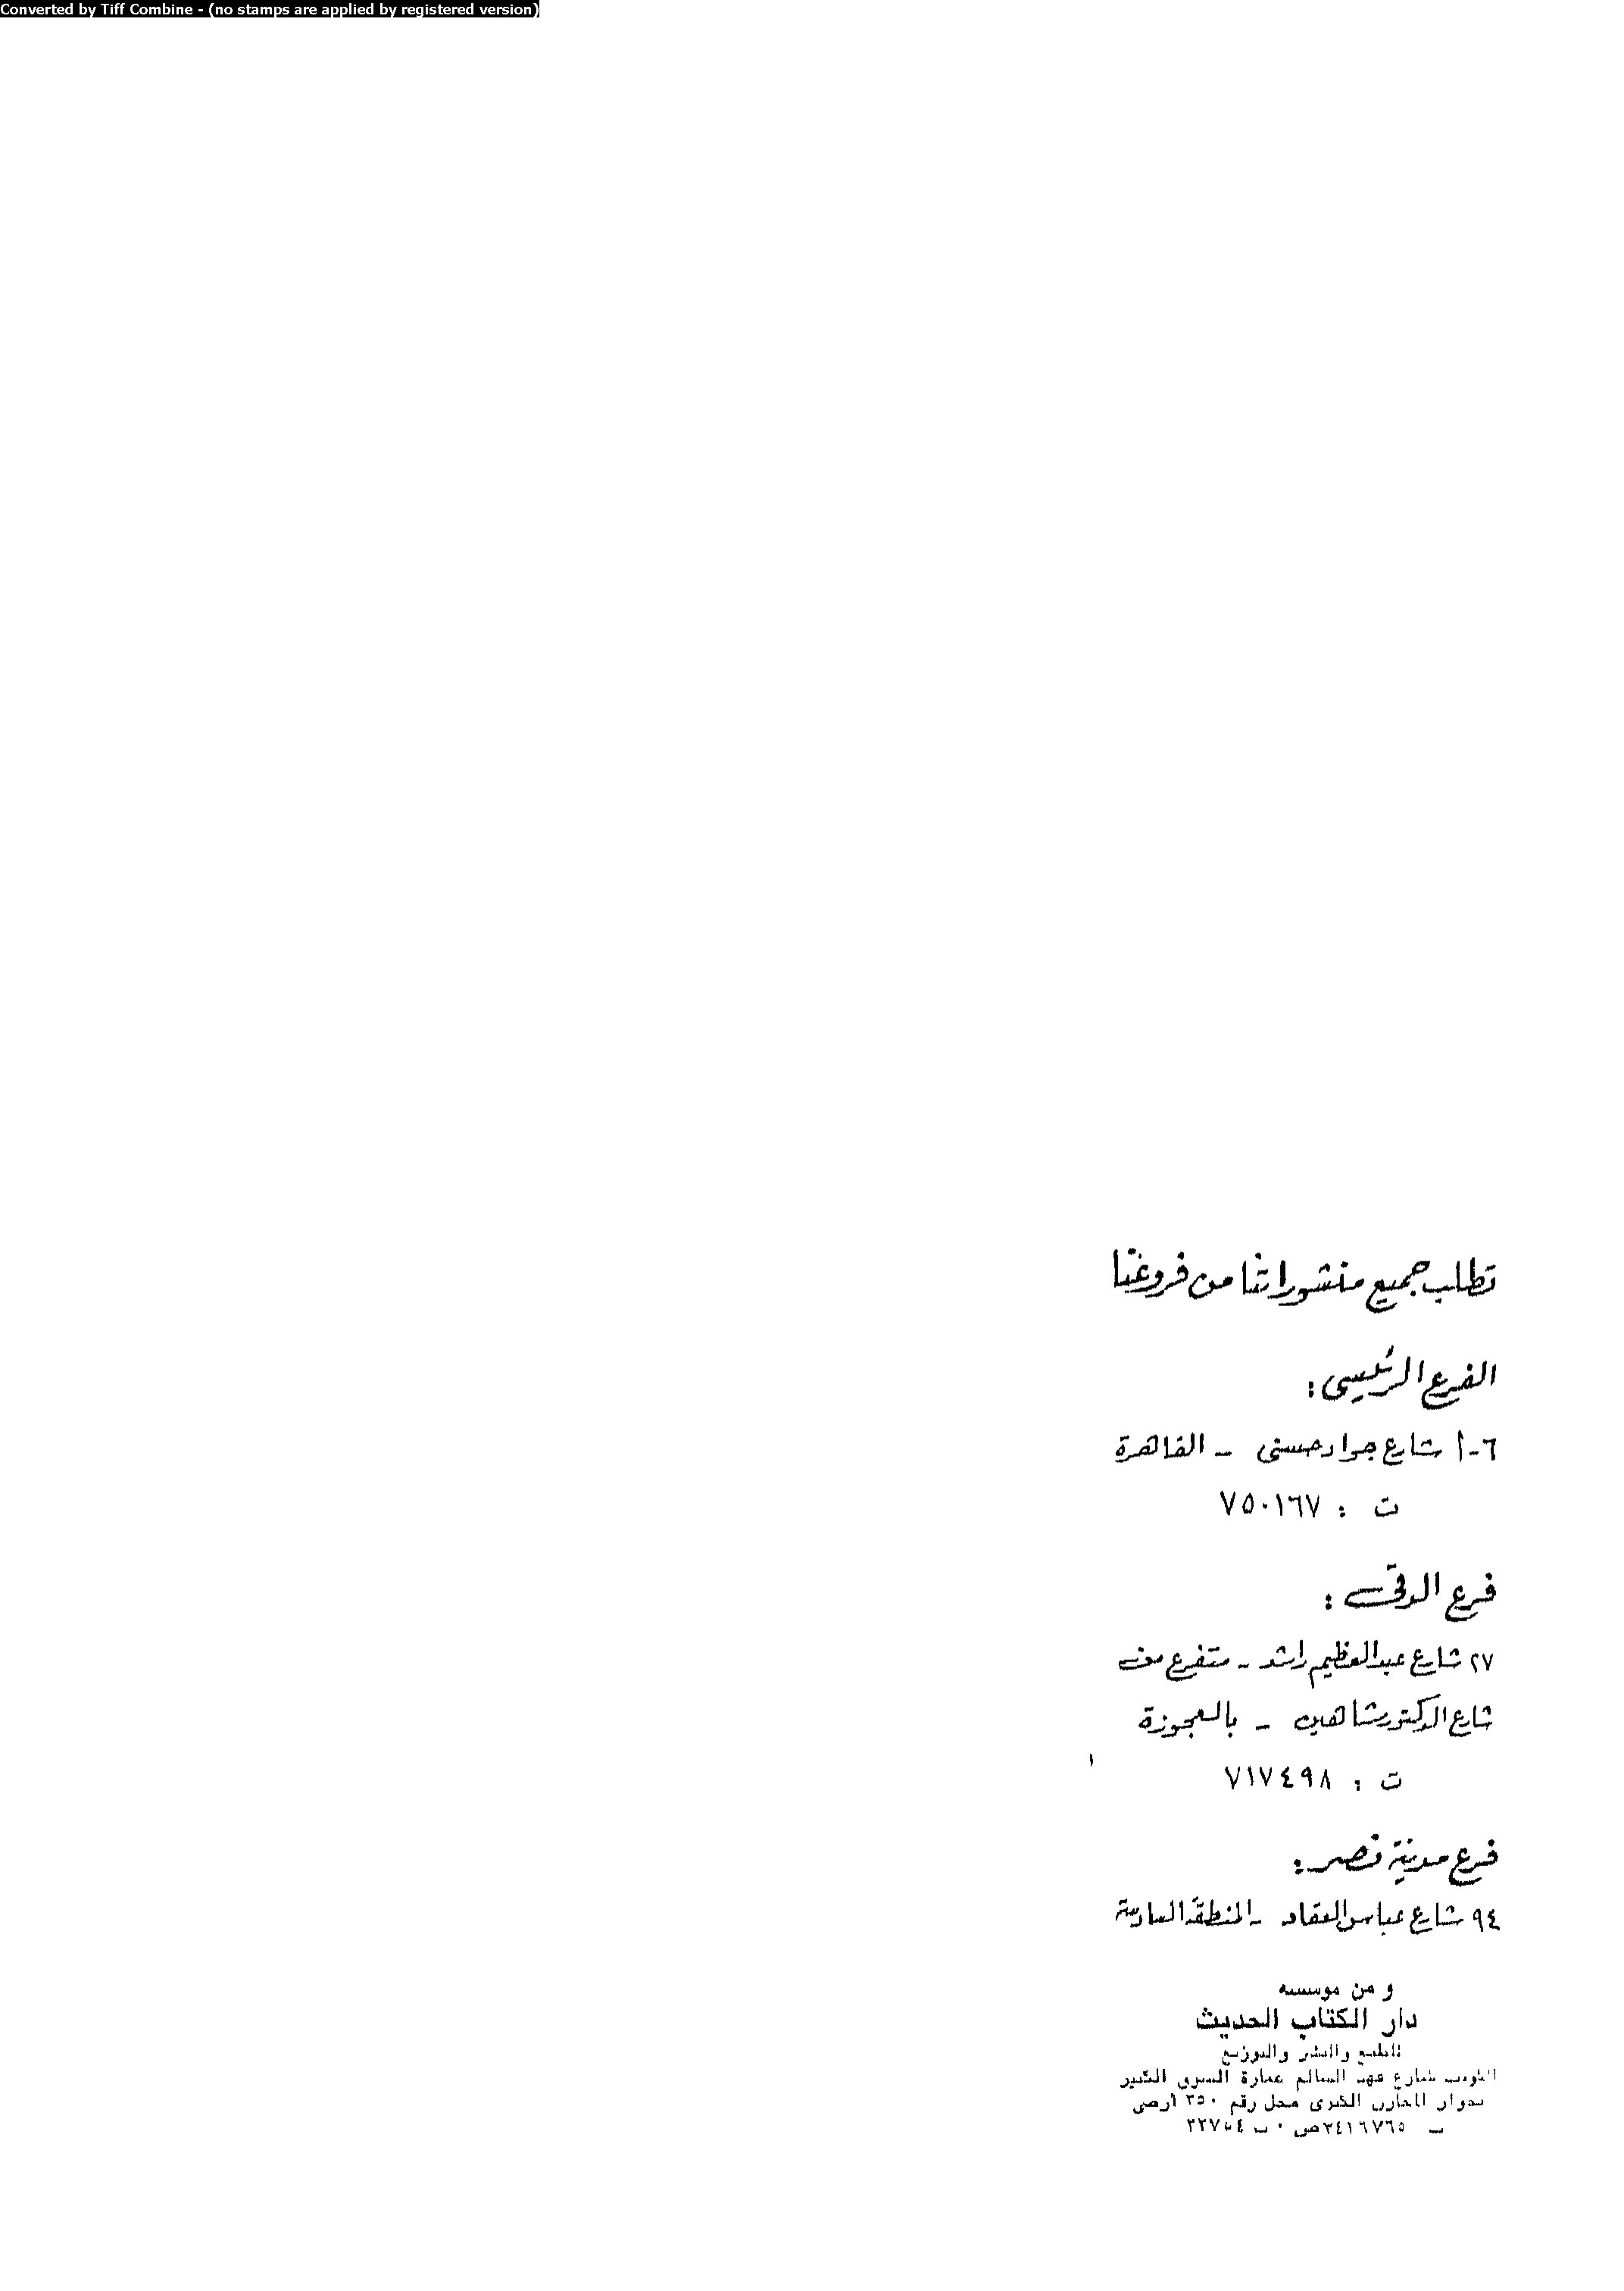 Converted by Tiff Combine - (no stamps are applied by registered version)
تطلب جميع منشوراتنا من فروعنا
الفرع الرئيسى :
٦-أ شارع جواد حسنى - القاهرة
ت : ٧٥٠١٦٧
فرع الدقى :
٢٧ شارع عبد العظيم راشد - متفرع من
شارع الدكتور شاهين - بالعجوزة
ت : ٧١٧٤٩٨
فرع مدينة نصر :
٩٤ شارع عباس العقاد - المنطقة السادسة
و من موسسه
دار الكتاب الحديث
للطبع والنشر والتوزيع
شارع فهد السالم عمارة السوق الكبير
بجوار المخازن الكبرى محل رقم ٣٥٠ ارضى
٢٤١٦٧٦٥ ص ٠ ب